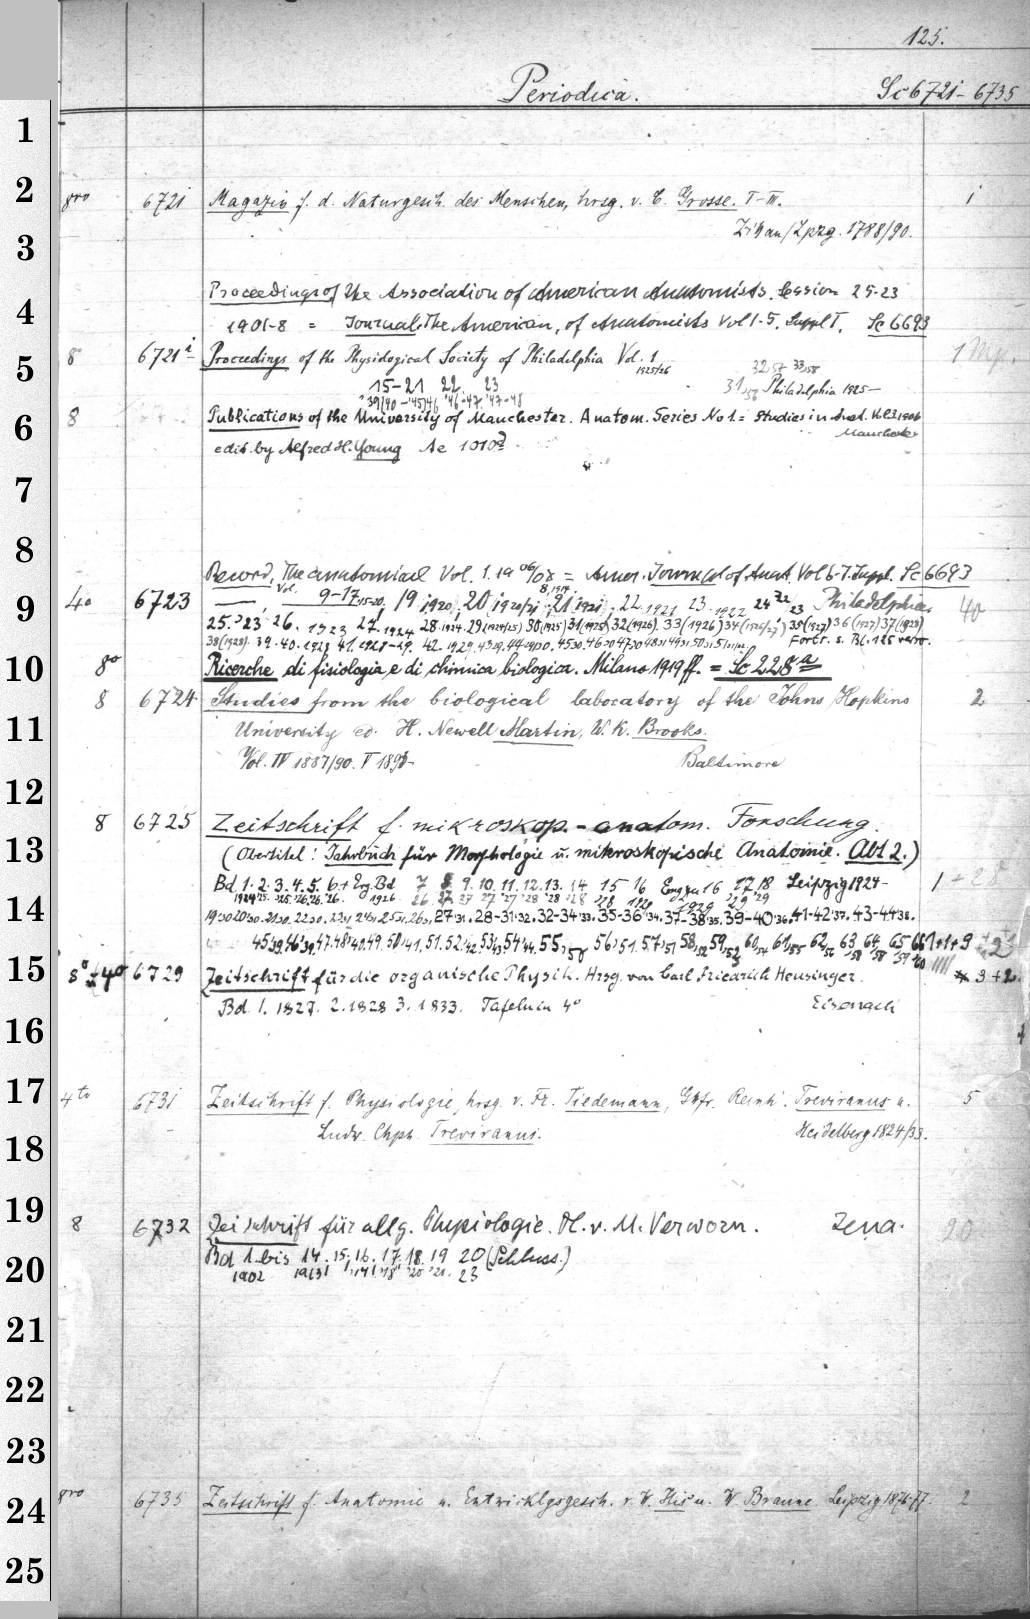 125.
Periodica. Sc 6721-6735
1
2 8vo 6721 Magazin f. d. Naturgesch. des Menschen, hrsg. v. C. Grosse. I-III. 1
Zittau/Lpzg. 1788/90.
3
Proceedings of the Association of American Anatomists. Session 25-23
4 1901-8 = Journal, The American, of Anatomists Vol 1-5. Suppl I. Sc 6693
5 8 6721 i Proceedings of the Physiological Society of Philadelphia Vol. 1 1925/26
15-21 22 23 31 Philadelphia 1925-
39/40-45/46 46-47 47-48
6 8 Publications of the University of Manchester. Anatom. Series No 1 = Studies in Anat. Vol. 3 1906
Manchester
edit. by Alfred H. Young Ae 1010
7
8
Record, The anatomical Vol. 1. 1906/08 = Amer. Journal of Anat. Vol 6-7. Suppl. Sc 6693
9 4o 6723 Vol. 9-17 15-20, 19 1920, 20 1920/21, 21 1921, 22 1921 23 1922 24 Philadelphia. 40
25. 23, 26. 1923 27. 1924 28. 1924. 29 (1924/25) 30 (1925) 31 (1925) 32 (1926). 33 (1926) 34 (1926/27) 35 (1927) 36 (1927) 37 (1928)
38 (1928). 39. 40. 1928 41. 1928-29. 42. 1929. Forts. s. Bl. 126 verso.
10 8o Ricerche di fisiologia e di chimica biologica. Milano 1919 ff. = Sc 228 a
8 6724 Studies from the biological laboratory of the Johns Hopkins 2
11 University ed. H. Newell Martin, W. K. Brooks.
Vol. IV 1887/90. V 1893- Baltimore
12
8 6725 Zeitschrift f. mikroskop.-anatom. Forschung.
13 (Obertitel: Jahrbuch für Morphologie u. mikroskopische Anatomie. Abt 2.)
Bd 1. 2. 3. 4. 5. 6 + Erg. Bd 7 8 9. 10. 11. 12. 13. 14 15 16 17 18 Leipzig 1924- 1 + 28
14 27 31. 28-31 32. 32-34 33. 35-36 34. 37-38 35. 39-40 36. 41-42 37. 43-44 38.
15 8o + 4o 6729 Zeitschrift für die organische Physik. Hrsg. von Carl Friedrich Heusinger. 3 + 2
Bd 1. 1827. 2. 1828 3. 1833. Tafeln in 4o Eisenach
16
17 4to 6731 Zeitschrift f. Physiologie, hrsg. v. Fr. Tiedemann, Gtfr. Reinh. Treviranus u. 5
18 Ludw. Chph. Treviranus. Heidelberg 1824/33.
19 8 6732 Zeitschrift für allg. Physiologie. H. v. M. Verworn. Jena. 20
20 Bd 1 bis 14. 15. 16. 17. 18. 19 20 (Schluss.)
1902 23
21
22
23
24 8vo 6735 Zeitschrift f. Anatomie u. Entwicklgsgesch. v. W. His u. W. Braune Leipzig 1876-77. 2
25